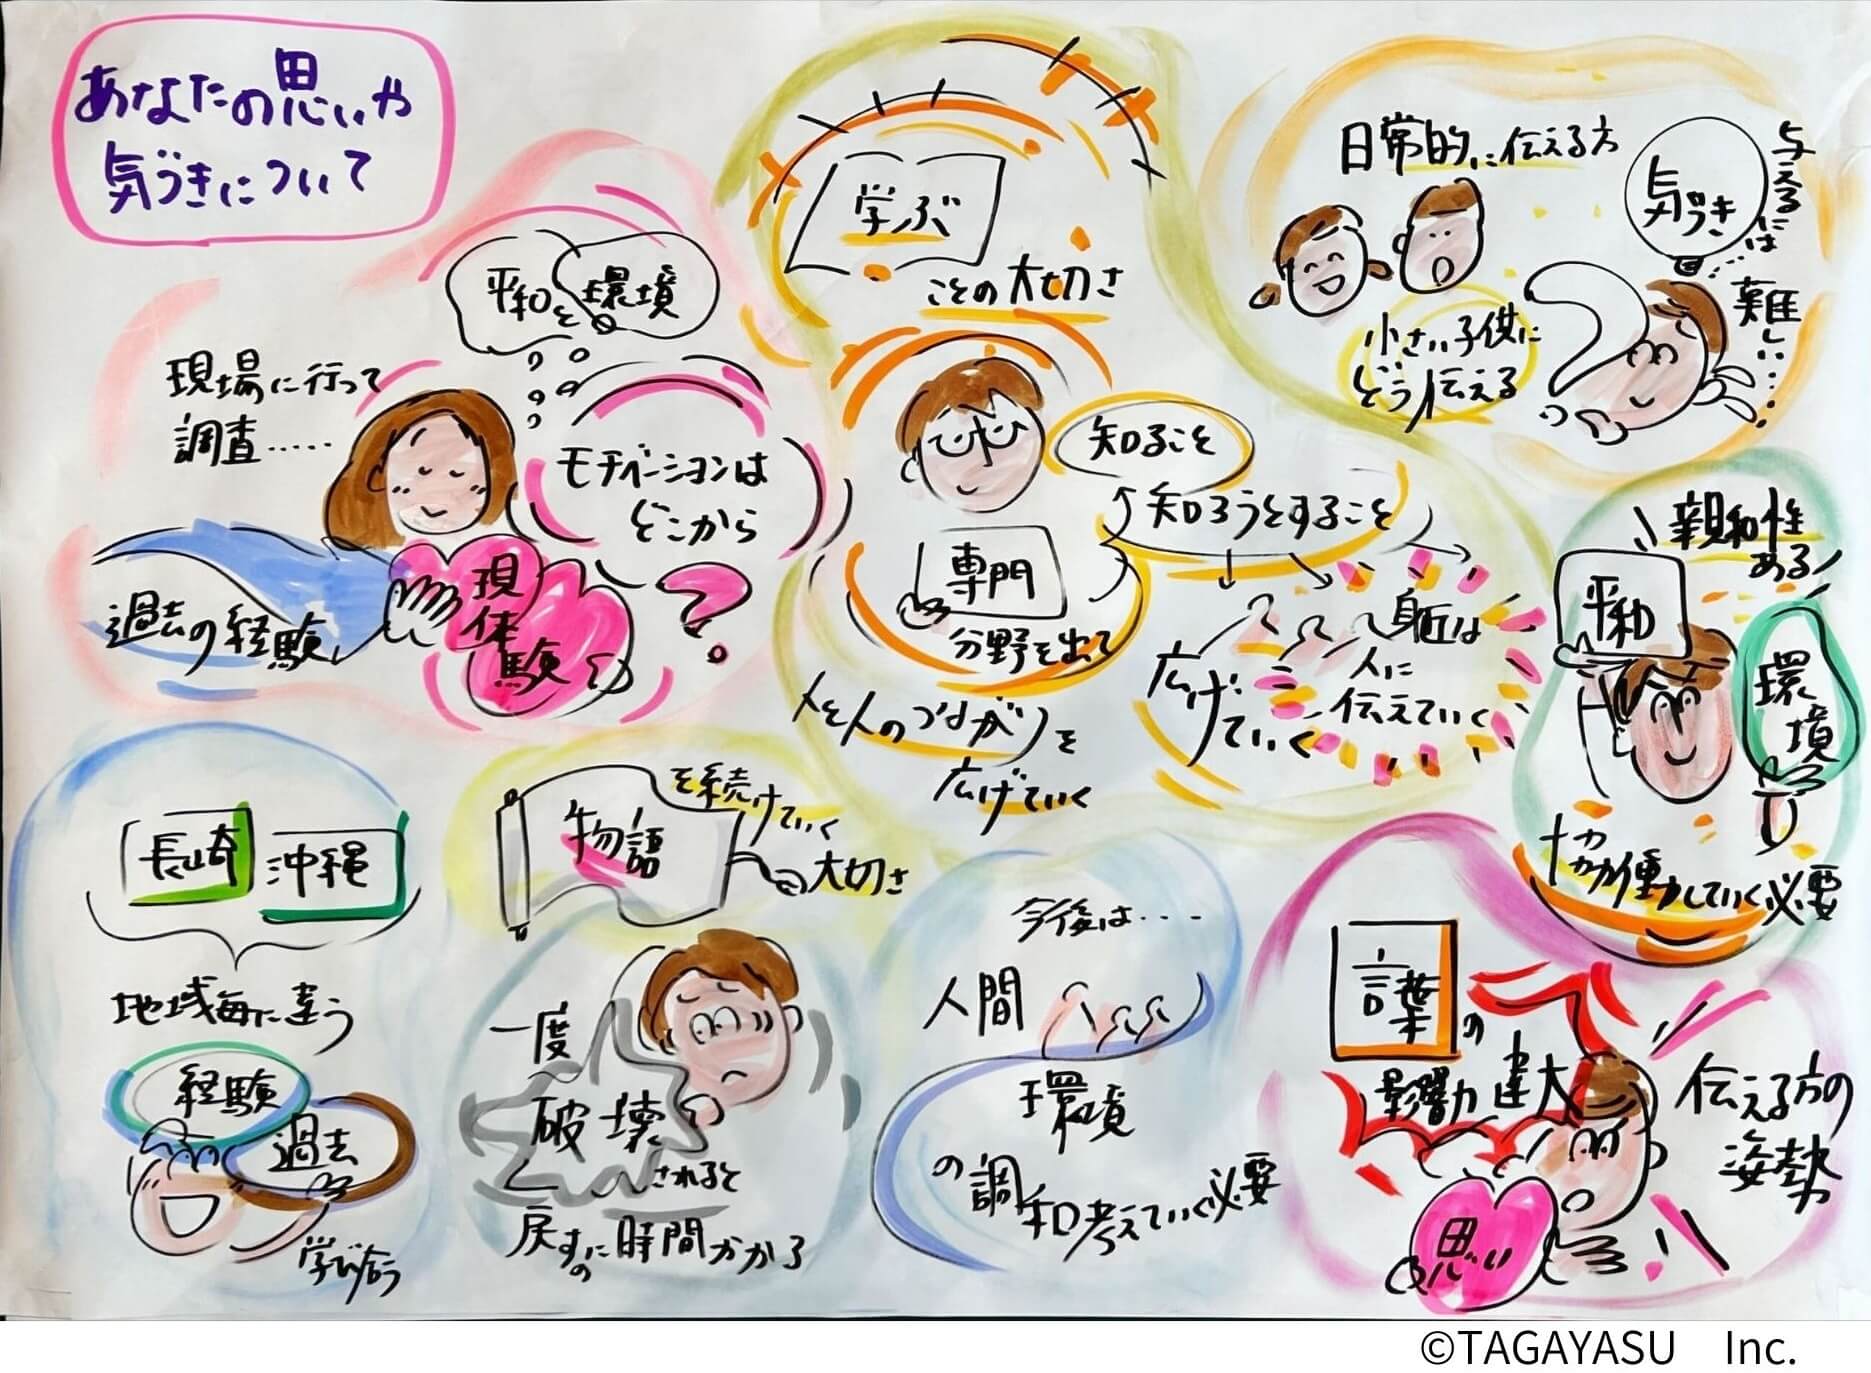 あなたの思いや
気づきについて
平和と環境
現場に行って
調査……
モチベーションは
どこから
?
過去の経験
現体験
学ぶ
ことの大切さ
知ること
知ろうとすること
専門
分野を出て
人と人のつながりを
広げていく
広げていく
身近は
人に
伝えていく
日常的に伝える方
気づき
与えるには
難しい……
小さい子供に
どう伝える
親和性
ある
平和
環境
協働していく必要
長崎
沖縄
地域毎に違う
経験
過去
学び合う
物語
を続けていく
大切さ
一度
破壊
されると
戻すのに時間かかる
今後は・・・・
人間
環境
の調和考えていく必要
言葉の
影響力 大
伝える方の
姿勢
思い
©TAGAYASU Inc.